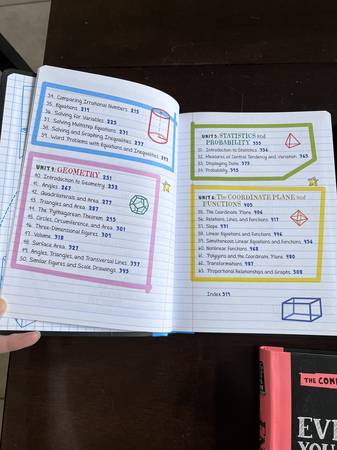 34. Comparing Irrational Numbers 213
35. Equations 217
36. Solving for Variables 225
37. Solving Multistep Equations 231
38. Solving and Graphing Inequalities 237
39. Word Problems with Equations and Inequalities 243
UNIT 4: GEOMETRY 251
40. Introduction to Geometry 252
41. Angles 267
42. Quadrilaterals and Area 277
43. Triangles and Area 287
44. The Pythagorean Theorem 295
45. Circles, Circumference, and Area 301
46. Three-Dimensional Figures 309
47. Volume 318
48. Surface Area 327
49. Angles, Triangles, and Transversal Lines 337
50. Similar Figures and Scale Drawings 345
UNIT 5: STATISTICS and
PROBABILITY 355
51. Introduction to Statistics 356
52. Measures of Central Tendency and Variation 365
53. Displaying Data 375
54. Probability 395
UNIT 6: The COORDINATE PLANE and
FUNCTIONS 405
55. The Coordinate Plane 406
56. Relations, Lines, and Functions 417
57. Slope 431
58. Linear Equations and Functions 446
59. Simultaneous Linear Equations and Functions 456
60. Nonlinear Functions 468
61. Polygons and the Coordinate Plane 480
62. Transformations 487
63. Proportional Relationships and Graphs 508
Index 517
THE COM
EV
YOU